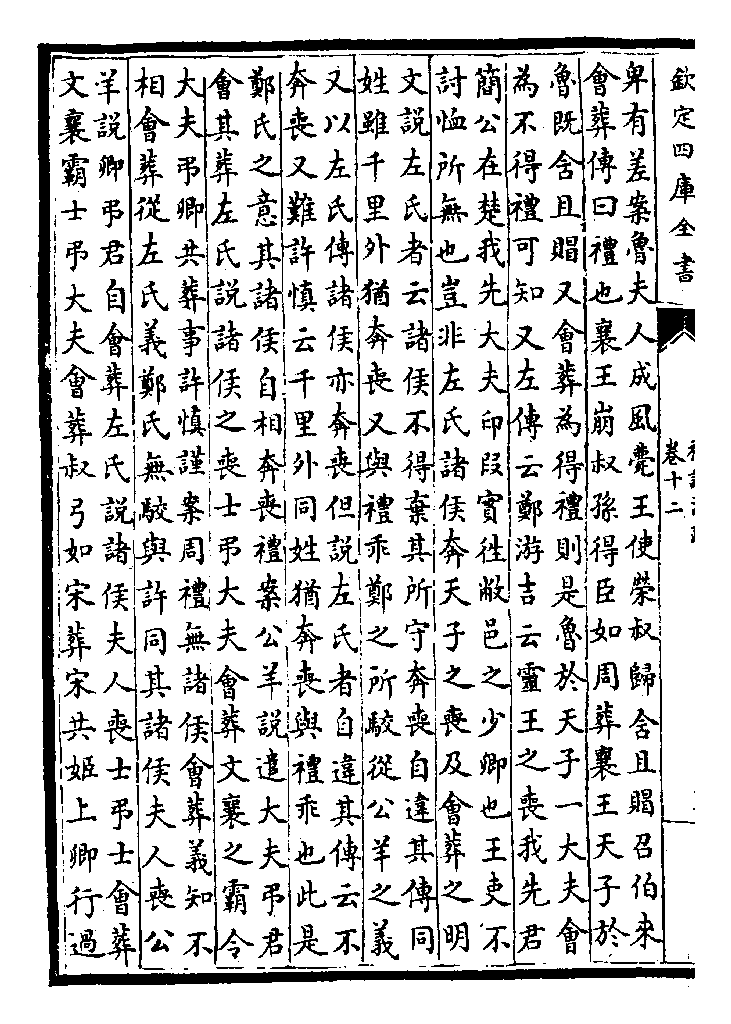 欽定四庫全書
卷十二
卑有差案魯夫人成風薨王使榮叔歸含且賵召伯來
會葬傳曰禮也襄王崩叔孫得臣如周葬襄王天子於
魯既含且賵又會葬為得禮則是魯於天子一大夫會
為不得禮可知又左傳云鄭游吉云靈王之喪我先君
簡公在楚我先大夫印段實徃敝邑之少卿也王吏不
討恤所無也豈非左氏諸侯奔天子之喪及會葬之明
文說左氏者云諸侯不得棄其所守奔喪自違其傳同
姓雖千里外猶奔喪又與禮乖鄭之所駮從公羊之義
又以左氏傳諸侯亦奔喪但說左氏者自違其傳云不
奔喪又難許慎云千里外同姓猶奔喪與禮乖也此是
鄭氏之意其諸侯自相奔喪禮案公羊說遣大夫弔君
會其葬左氏說諸侯之喪士弔大夫會葬文襄之霸令
大夫弔卿共葬事許慎謹案周禮無諸侯會葬義知不
相會葬從左氏義鄭氏無駮與許同其諸侯夫人喪公
羊說卿弔君自會葬左氏說諸侯夫人喪士弔士會葬
文襄霸士弔大夫會葬叔弓如宋葬宋共姬上卿行過